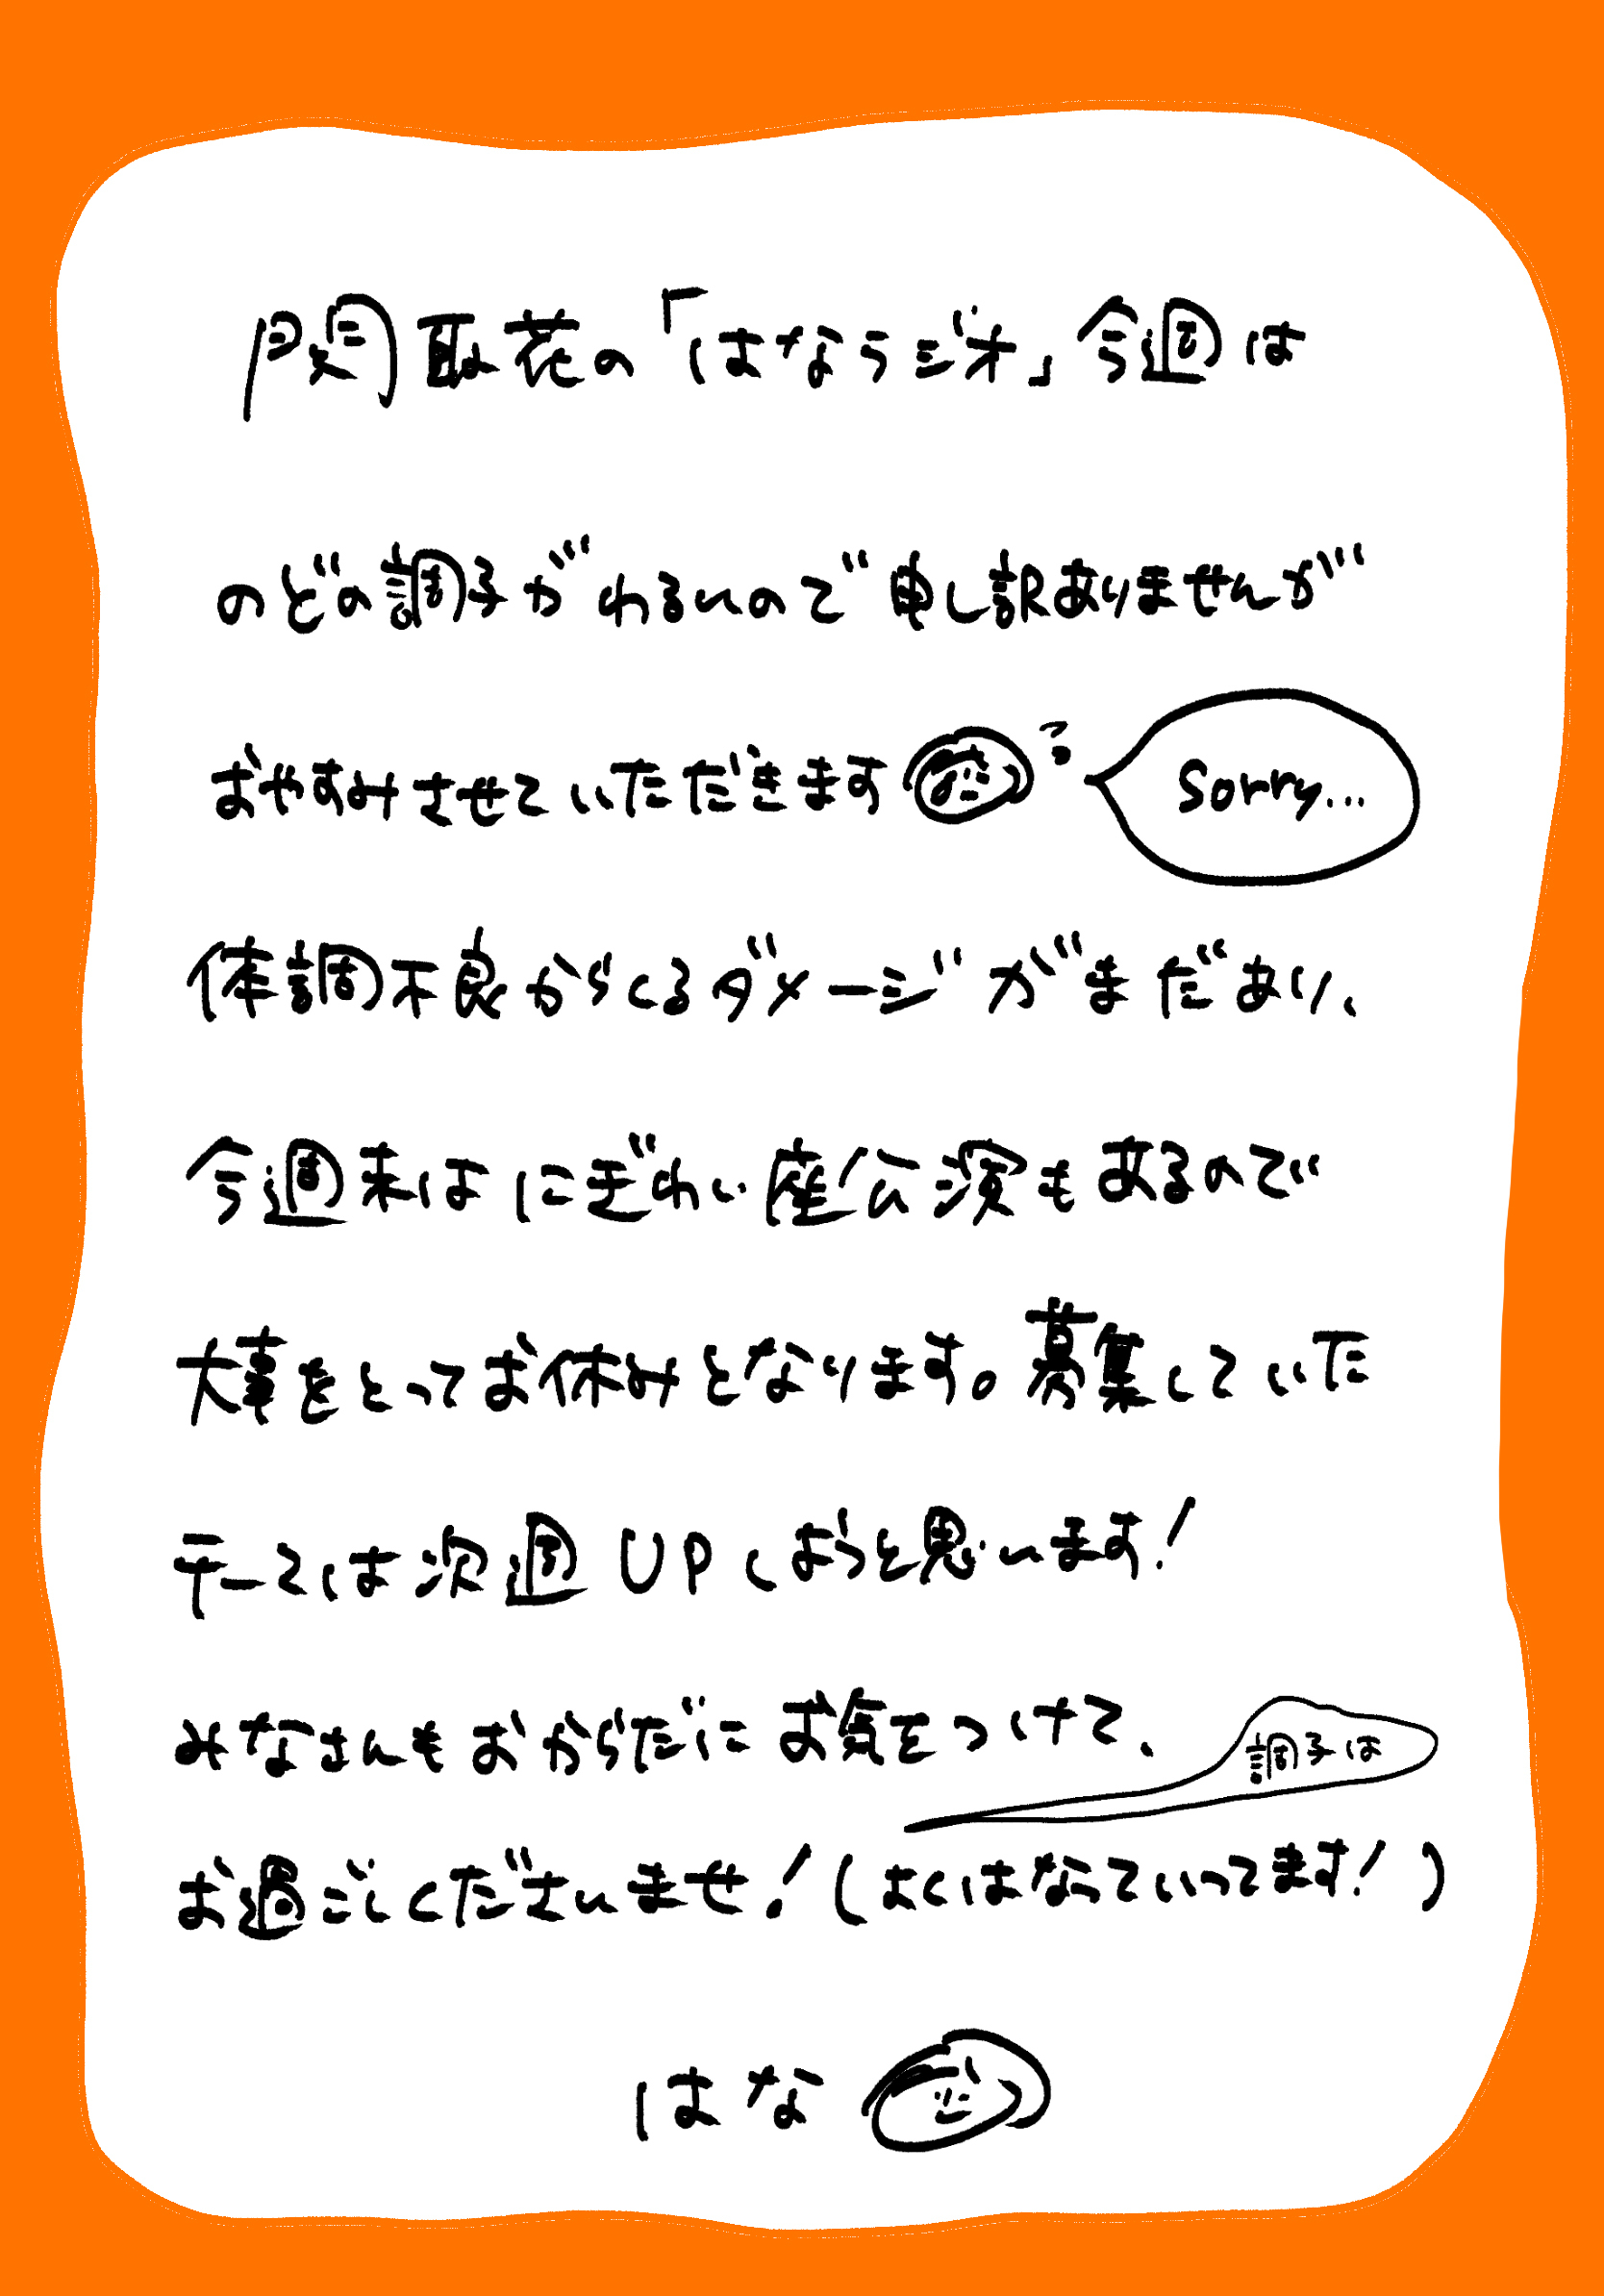 関取花の「はならジオ」今週は
のどの調子がわるいので申し訳ありませんが
おやすみさせていただきます
Sorry...
体調不良からくるダメージがまだあり、
今週末はにぎわい座公演もあるので
大事をとってお休みとなります。募集していた
テーマは次週UPしようと思います!
みなさんもおからだにお気をつけて、
お過ごしくださいませ!(よくはなっていってます!)
調子は
はな